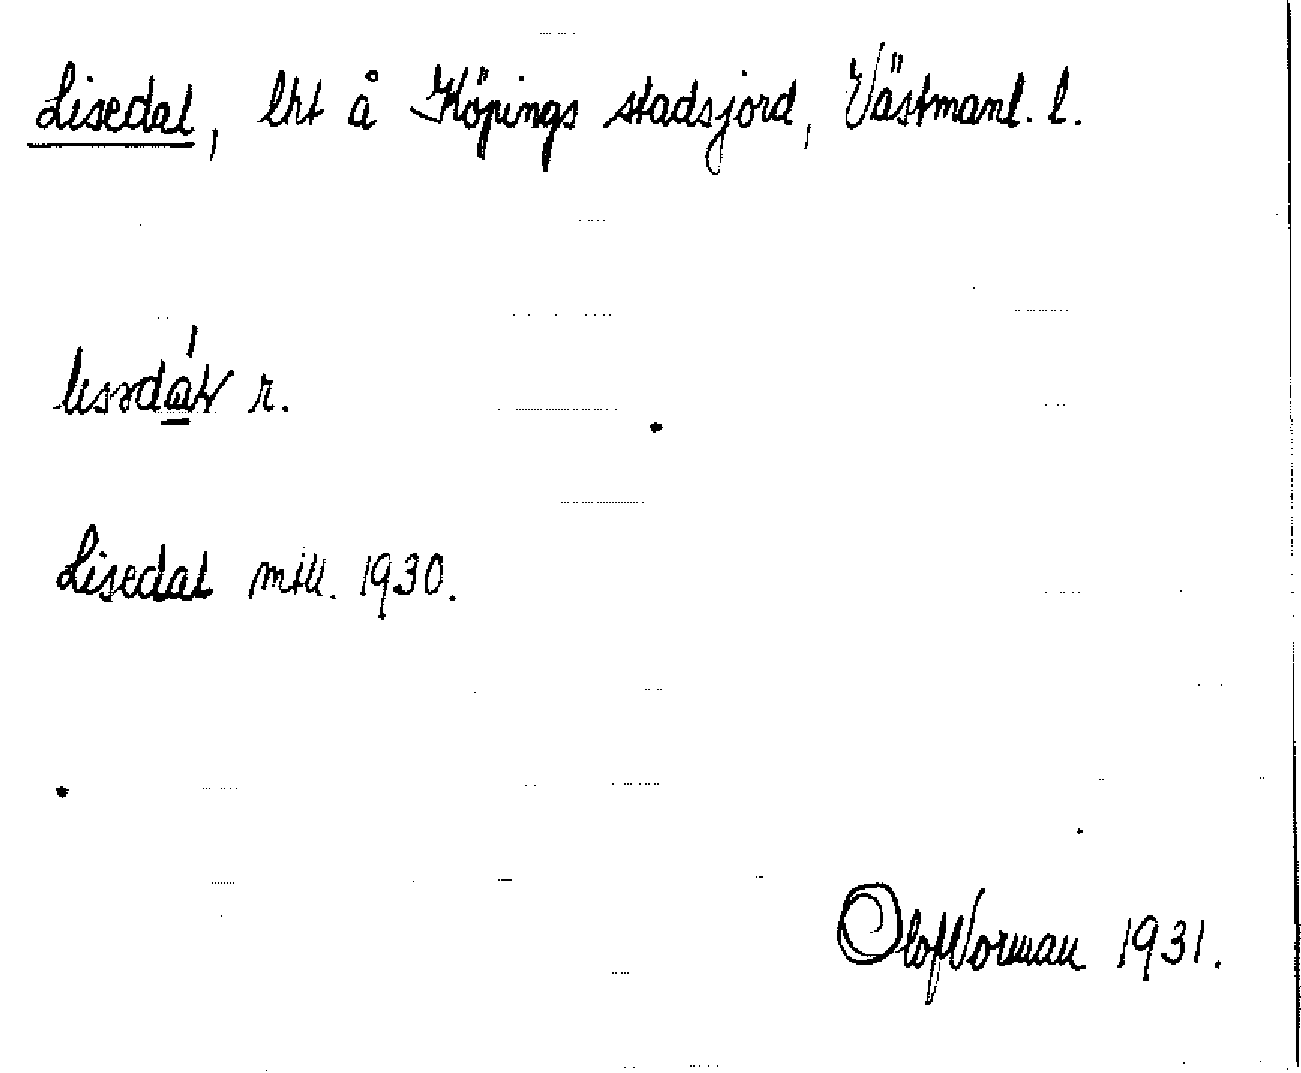 Lisedal, lht å Köpings stadsjord, Västmanl. l.
r.
Lisedal mtll. 1930.
Olof Norman 1931.